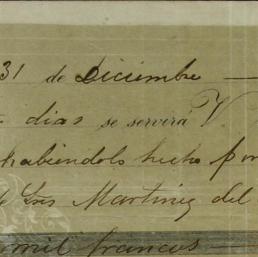 31 de Diciembre
dias se servirá V
habiendolo hecho por
Luis Martinez del
mil francos